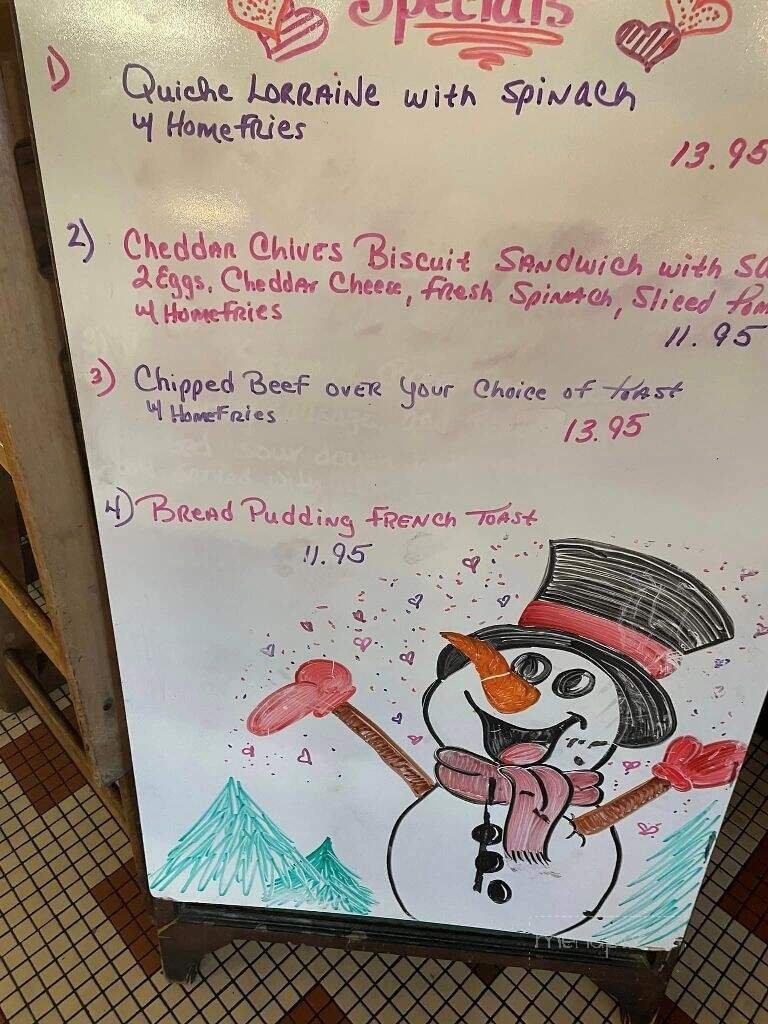 Specials
1) Quiche LORRAINE with SPINACH
w/ HomeFries
13.95
2) Cheddar Chives Biscuit Sandwich with
2 Eggs, Cheddar Cheese, Fresh Spinach, Sliced
w/ HomeFries
11.95
3) Chipped Beef over your Choice of toast
w/ HomeFries
13.95
4) Bread Pudding FRENCH TOAST
11.95